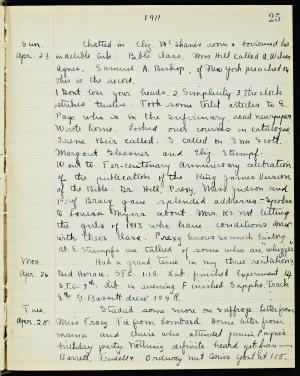 1911
25
Sun. Chatted in Eliz McShane's room & borrowed his
Apr. 23 indelible ink. Bible class. Mrs Hill called @ Wilson
Agnes. Samuel A. Bishop, of New York preached on
this is the record.
1 Dont lose your heads. 2 Simplicity 3 The clock
strikes twelve. Took some toilet articles to E.
Page who is in the infirmary, read newspapers
Wrote home. Looked over courses in catalogue.
Irene Beir called. I called on Ina Scott,
Margaret Glessner, and Eliz. Stumpf.
Went to Ter-centenary Anniversary celebration
of the publication of the King James Version
of the Bible. Dr. Hill Prexy, Miss Judson and
Prof Bracq gave splendid addresses. Spoke
to Louise Myers about Mrs. K's not letting
the girls of 1913 who have conditions
with their class. Prexy knows so much history
at E. Stumpf's we talked of some who are
Mon. Had a great time in my three recitations
Apr. 24 Red Horace. S.T.C. 1:15. Lat. finished Experiment 14
S.T.C. 7th Lit. is evening F finished Sappho. Track
8th G. Bassett drew 104 R.
Tues. Studied some more on suffrage. Letter from
Apr. 25. Miss Tracy. Pd from Lombard. Home letter from
mama and Marie who attended Jennie Payne's
birthday party. Nothing definite heard yet from
Barrett, Trusdell & Ordway met Miss Yost at 1:15.